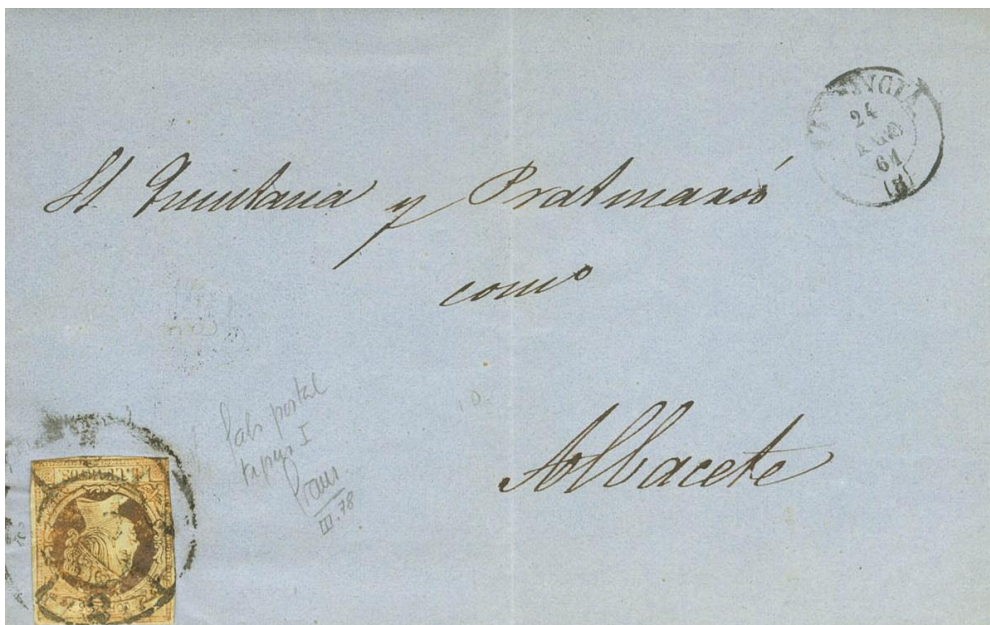 24
AGO
61
(8)
St Quintana y Pratmarsó
comº
Albacete
fals postal
tipus I
III.78